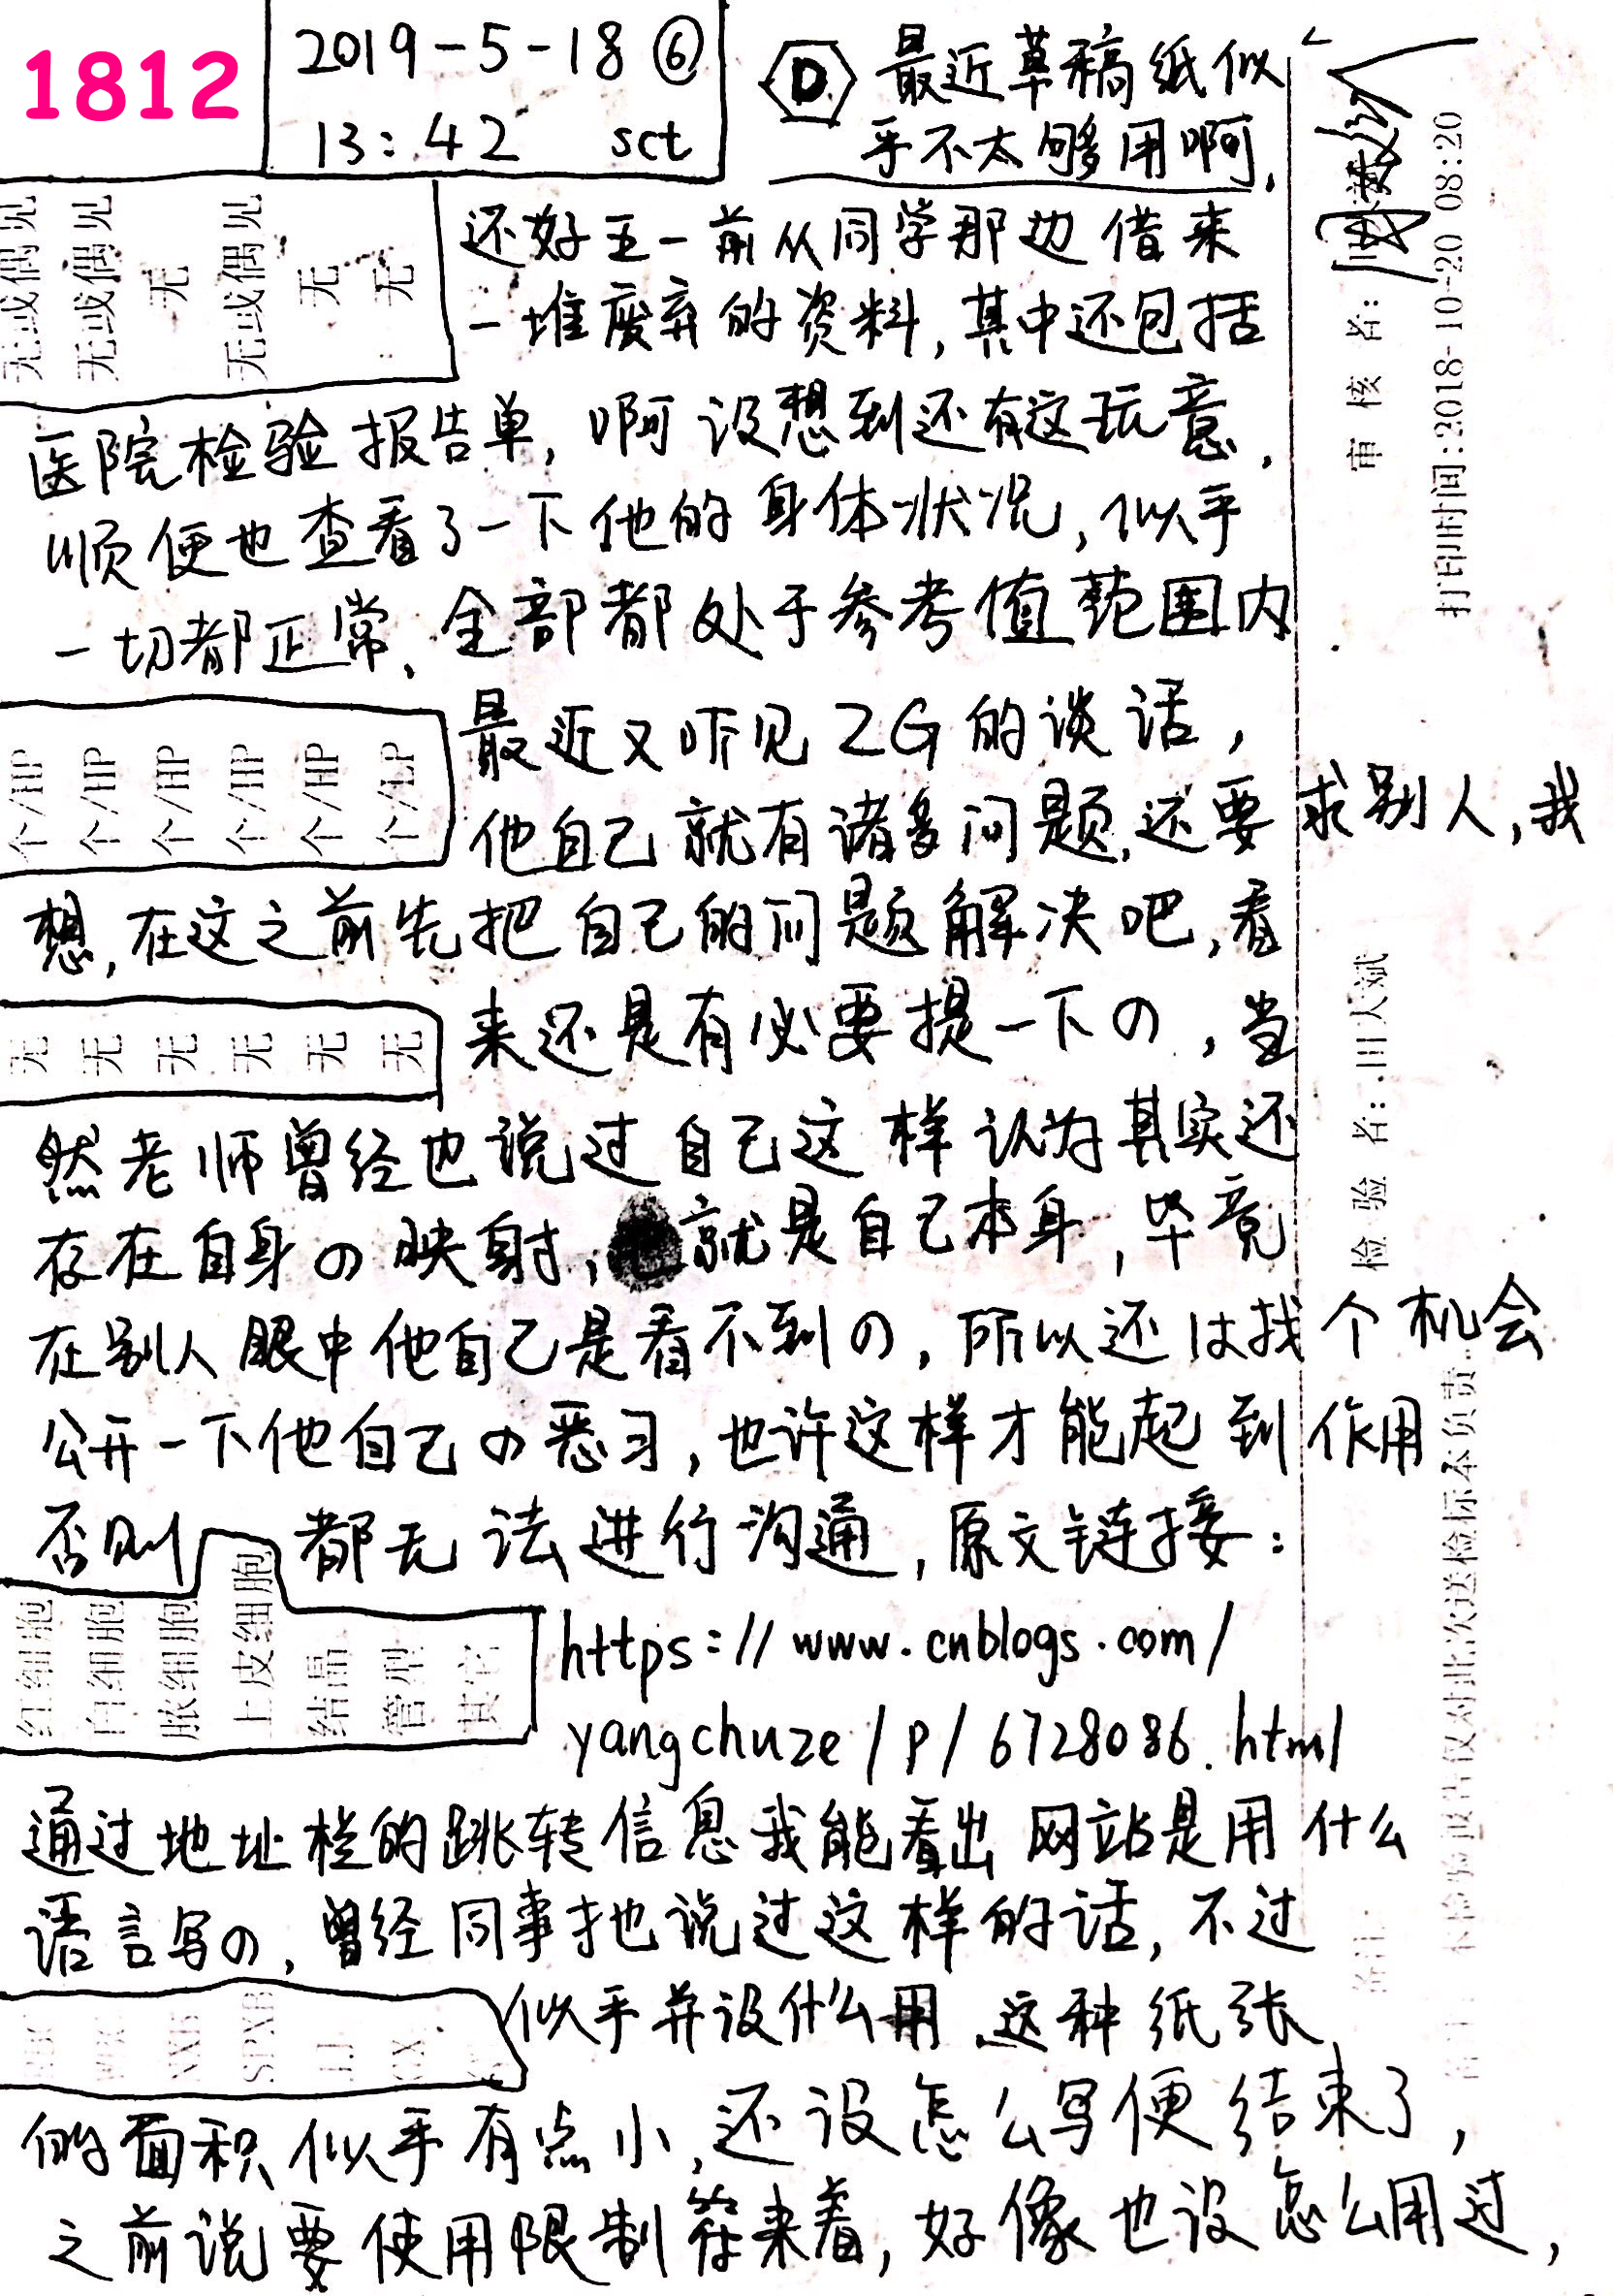 1812
2019-5-18 ⑥
13:42 sct
D. 最近草稿纸似
乎不太够用啊,
还好五一前从同学那边借来
一堆废弃的资料,其中还包括
医院检验报告单,啊没想到还有这玩意,
顺便也查看了一下他的身体状况,似乎
一切都正常、全部都处于参考值范围内
最近又听见ZG的谈话,
他自己就有诸多问题,还要求别人,我
想,在这之前先把自己的问题解决吧,看
来还是有必要提一下の,当
然老师曾经也说过自己这样认为其实还
存在自身の映射,就是自己本身,毕竟
在别人眼中他自己是看不到の,所以还は找个机会
公开一下他自己の恶习,也许这样才能起到作用
否则 都无法进行沟通,原文链接:
https://www.cnblogs.com/
yangchuze/p/6728086.html
通过地址栏的跳转信息我能看出网站是用什么
语言写の,曾经同事も说过这样的话,不过
似乎并没什么用.这种纸张
的面积似乎有点小,还没怎么写便结束了,
之前说要使用限制符来着,好像也没怎么用过,
无或偶见
无或偶见
无
无或偶见
无
无
个/HP
个/HP
个/HP
个/HP
个/HP
个/LP
无
无
无
无
无
无
红细胞
白细胞
脓细胞
上皮细胞
结晶
管型
其它
审 核 者:
打印时间:2018-10-20 08:20
检 验 者:
本检验报告仅对此次送检标本负责.